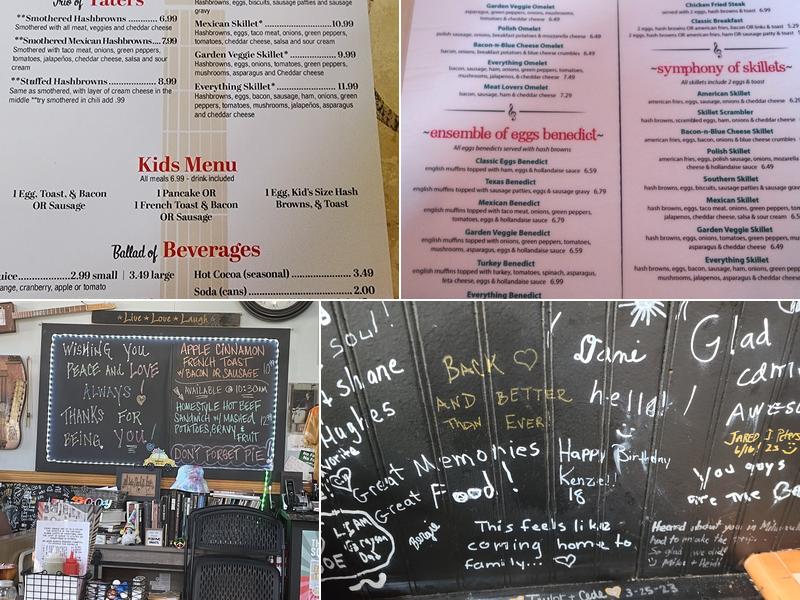 Trio of Taters
**Smothered Hashbrowns ............ 6.99
Smothered with all meat, veggies and cheddar cheese
**Smothered Mexican Hashbrowns.... 7.99
Smothered with taco meat, onions, green peppers,
tomatoes, jalapeños, cheddar cheese, salsa and sour
cream
**Stuffed Hashbrowns ............ 8.99
Same as smothered, with layer of cream cheese in the
middle **try smothered in chili add .99
Hashbrowns, eggs, biscuits, sausage patties and sausage
gravy
Mexican Skillet* ............ 10.99
Hashbrowns, eggs, taco meat, onions, green peppers,
tomatoes, jalapeños, cheddar cheese, salsa and sour cream
Garden Veggie Skillet* ............ 9.99
Hashbrowns, eggs, onions, tomatoes, green peppers,
mushrooms, asparagus and Cheddar cheese
Everything Skillet* ............ 11.99
Hashbrowns, eggs, bacon, sausage, ham, onions, green
peppers, tomatoes, mushrooms, jalapeños, asparagus
and cheddar cheese
Kids Menu
All meals 6.99 - drink included
1 Egg, Toast, & Bacon
OR Sausage
1 Pancake OR
1 French Toast & Bacon
OR Sausage
1 Egg, Kid's Size Hash
Browns, & Toast
Ballad of Beverages
uice ............ 2.99 small | 3.49 large
ange, cranberry, apple or tomato
Hot Cocoa (seasonal) ............ 3.49
Soda (cans) ............ 2.00
Garden Veggie Omelet
asparagus, green peppers, onions, mushrooms,
tomatoes & cheddar cheese 6.49
Polish Omelet
polish sausage, onions, breakfast potatoes & mozzarella cheese 6.49
Bacon-n-Blue Cheese Omelet
bacon, onions, breakfast potatoes & blue cheese crumbles 6.49
Everything Omelet
bacon, sausage, ham, onions, green peppers, tomatoes,
mushrooms, jalapenos & cheddar cheese 7.49
Meat Lovers Omelet
bacon, sausage, ham & cheddar cheese 7.29
~ensemble of eggs benedict~
All eggs benedicts served with hash browns
Classic Eggs Benedict
english muffins topped with ham, eggs & hollandaise sauce 6.59
Texas Benedict
english muffins topped with sausage patties, eggs & sausage gravy 6.79
Mexican Benedict
english muffins topped with taco meat, onions, green peppers,
tomatoes, jalapenos, eggs & hollandaise sauce 6.79
Garden Veggie Benedict
english muffins topped with onions, green peppers, tomatoes,
mushrooms, asparagus, eggs & hollandaise sauce 6.59
Turkey Benedict
english muffins topped with turkey, tomatoes, spinach, asparagus,
feta cheese, eggs & hollandaise sauce 6.99
Everything Benedict
Chicken Fried Steak
served with 2 eggs, hash browns & toast 6.99
Classic Breakfast
2 eggs, hash browns OR american fries, bacon OR links & toast 5.29
2 eggs, hash browns OR american fries, ham OR sausage patty & toast
~symphony of skillets~
All skillets include 2 eggs & toast
American Skillet
american fries, eggs, sausage, onions & cheddar cheese 6.29
Skillet Scrambler
hash browns, scrambled eggs, ham, onions & cheddar cheese
Bacon-n-Blue Cheese Skillet
american fries, eggs, bacon, onions & blue cheese crumbles
Polish Skillet
american fries, eggs, polish sausage, onions, mozarella
cheese & hollandaise sauce 6.49
Southern Skillet
hash browns, eggs, biscuits, sausage patties & sausage grav
Mexican Skillet
hash browns, eggs, taco meat, onions, green peppers, tomatoes,
jalapenos, cheddar cheese, salsa & sour cream 6.5
Garden Veggie Skillet
hash browns, eggs, onions, tomatoes, green peppers, mu
asparagus & cheddar cheese 6.49
Everything Skillet
hash browns, eggs, bacon, sausage, ham, onions, green pep
tomatoes, mushrooms, jalapenos, asparagus & cheddar cheese
Live Love Laugh
WISHING YOU
PEACE AND LOVE
ALWAYS!
THANKS FOR
BEING YOU!
APPLE CINNAMON
FRENCH TOAST
W/BACON OR SAUSAGE
AVAILABLE @ 10:30AM
HOMESTYLE HOT BEEF
SANDWICH W/MASHED
POTATOES, GRAVY &
FRUIT
DON'T FORGET PIE
soul!
t shane
Hughes
favorite
BACK ♡
AND BETTER
THAN EVER!
Great Memories
Great Food!
Dani
hello!
Happy Birthday
Kenzie!!
18
This feels like
coming home to
family... ♡
Glad
AWESO
JARED J Peters
6/16/23
You guys
are the Be
Heard about you in Milwauk
had to make the trip.
So glad we did!
Mike + Heidi
LIAM
Grayson
Dad
Taylor + Cade ♡ 3-25-23